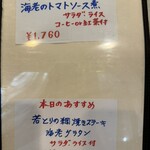 海老のトマトソース煮
サラダ、ライス
コーヒーor紅茶付
¥1,760
本日のおすすめ
若どりの網焼きステーキ
海老グラタン
サラダ ライス付